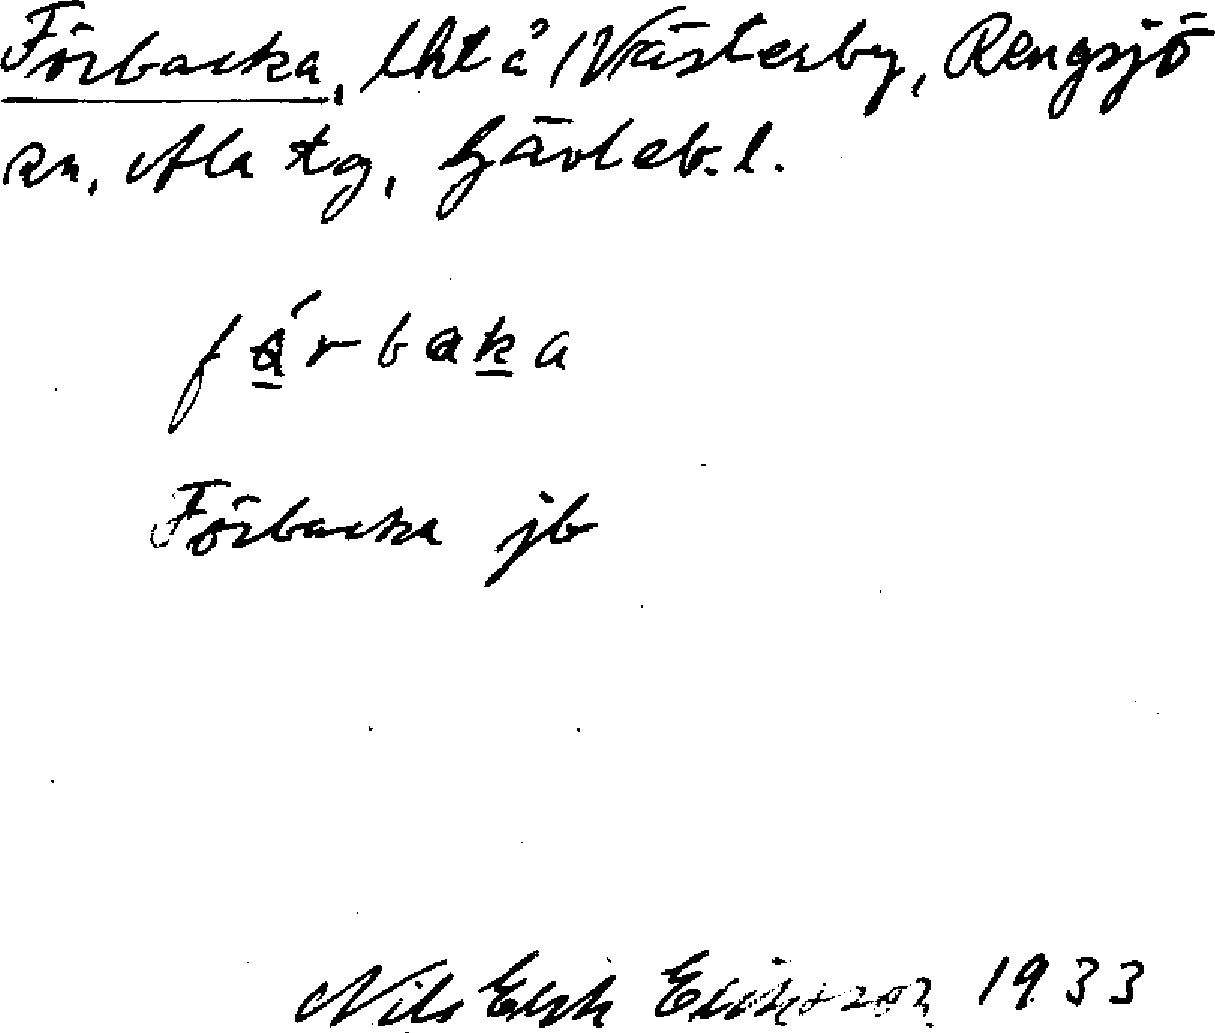 Förbacka, lht å Västerby, Rengsjö
sn, Ala tg, Gävleb. l.
fárbaka
Förbacka jb
Nils Erik Eriksson 1933